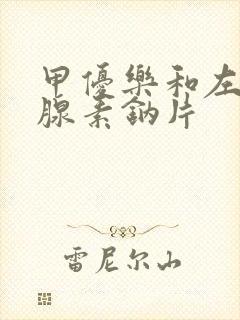 甲優樂和左
腺素鈉片
雷尼尔山